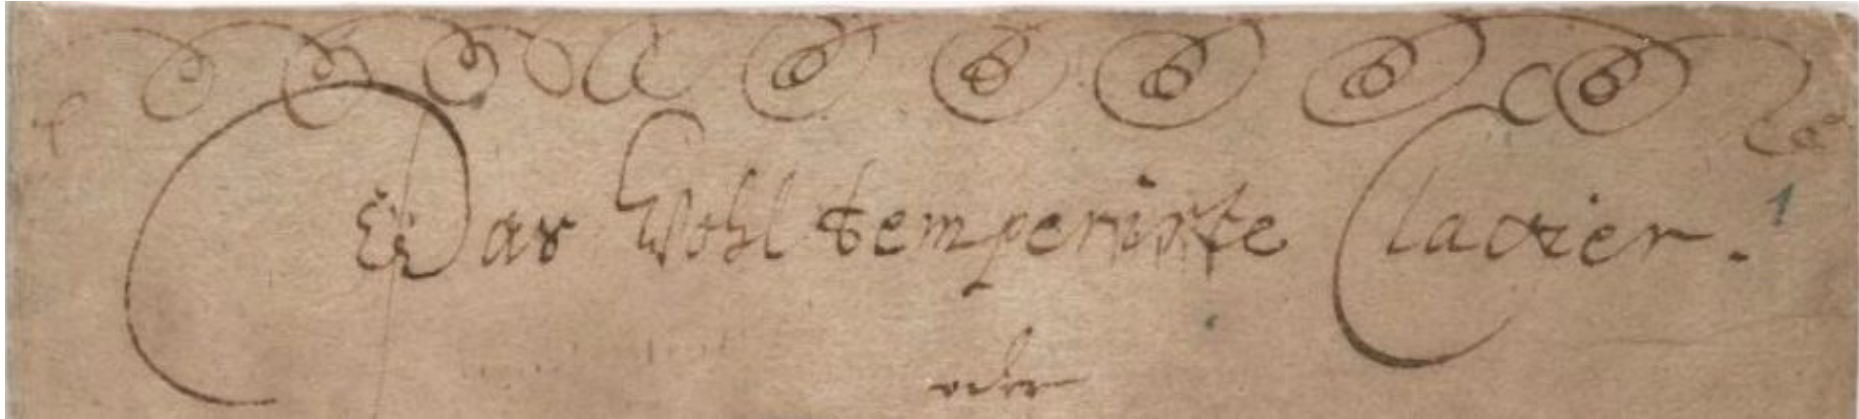 Das Wohl temperirte Clavier. 1
oder